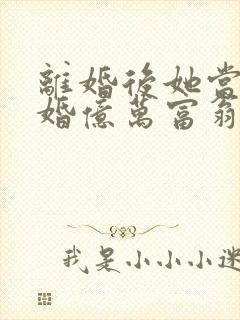 離婚後她當
婚億萬富翁
我是小小小迷